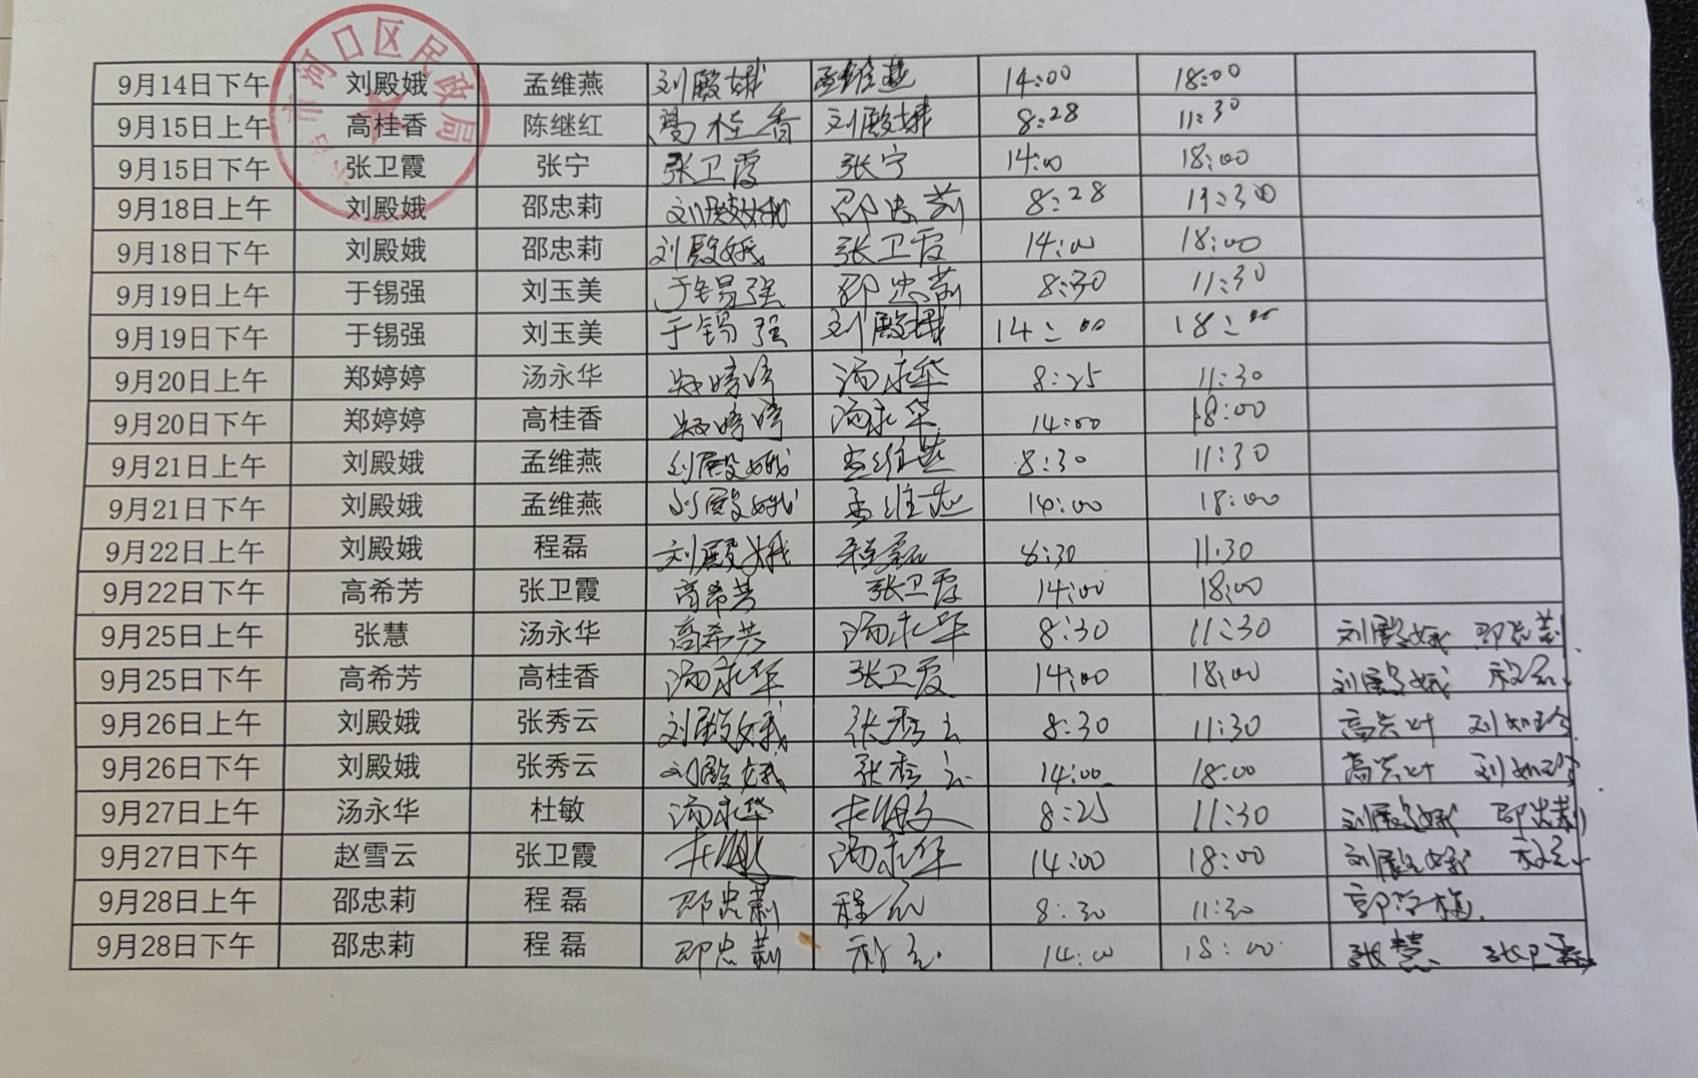 河口区民政局
9月14日下午 刘殿娥 孟维燕 刘殿娥 孟维燕 14:00 18:00
9月15日上午 高桂香 陈继红 高桂香 刘殿娥 8:28 11:30
9月15日下午 张卫霞 张宁 张卫霞 张宁 14:00 18:00
9月18日上午 刘殿娥 邵忠莉 刘殿娥 邵忠莉 8:28 11:30
9月18日下午 刘殿娥 邵忠莉 刘殿娥 张卫霞 14:00 18:00
9月19日上午 于锡强 刘玉美 于锡强 邵忠莉 8:30 11:30
9月19日下午 于锡强 刘玉美 于锡强 刘殿娥 14:00 18:00
9月20日上午 郑婷婷 汤永华 郑婷婷 汤永华 8:25 11:30
9月20日下午 郑婷婷 高桂香 郑婷婷 汤永华 14:00 18:00
9月21日上午 刘殿娥 孟维燕 刘殿娥 孟维燕 8:30 11:30
9月21日下午 刘殿娥 孟维燕 刘殿娥 孟维燕 14:00 18:00
9月22日上午 刘殿娥 程磊 刘殿娥 程磊 8:30 11:30
9月22日下午 高希芳 张卫霞 高希芳 张卫霞 14:00 18:00
9月25日上午 张慧 汤永华 高希芳 汤永华 8:30 11:30 刘殿娥 邵忠莉
9月25日下午 高希芳 高桂香 汤永华 张卫霞 14:00 18:00 刘殿娥 程磊
9月26日上午 刘殿娥 张秀云 刘殿娥 张秀云 8:30 11:30 高兴叶 刘如玲
9月26日下午 刘殿娥 张秀云 刘殿娥 张秀云 14:00 18:00 高兴叶 刘如玲
9月27日上午 汤永华 杜敏 汤永华 杜敏 8:25 11:30 刘殿娥 邵忠莉
9月27日下午 赵雪云 张卫霞 杜敏 汤永华 14:00 18:00 刘殿娥 程磊
9月28日上午 邵忠莉 程 磊 邵忠莉 程磊 8:30 11:30
9月28日下午 邵忠莉 程 磊 邵忠莉 程磊 14:00 18:00 张慧 张卫霞